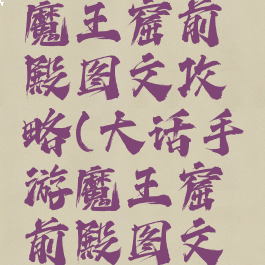 魔王窟前
殿图文攻
略(大话手
游魔王窟
前殿图文